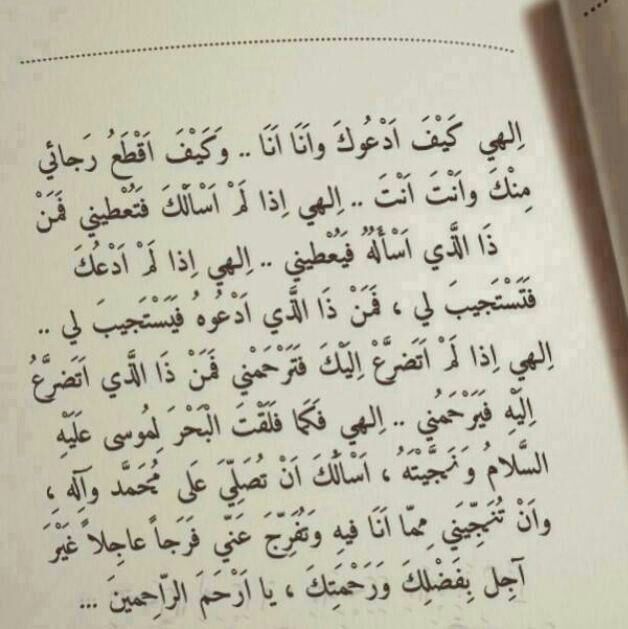 اِلهي كَيْفَ اَدْعُوكَ وَاَنَا اَنَا .. وَكَيْفَ اَقْطَعُ رَجائي
مِنْكَ وَاَنْتَ اَنْتَ .. اِلهي اِذا لَمْ اَسْاَلْكَ فَتُعْطيني فَمَنْ
ذَا الَّذي اَسْأَلُهُ فَيُعْطيني .. اِلهي اِذا لَمْ اَدْعُكَ
فَتَسْتَجيبَ لي ، فَمَنْ ذَا الَّذي اَدْعُوهُ فَيَسْتَجيبَ لي ..
اِلهي اِذا لَمْ اَتَضرَّعْ اِلَيْكَ فَتَرْحَمْني فَمَنْ ذَا الَّذي اَتَضرَّعُ
اِلَيْهِ فَيَرْحَمُني .. اِلهي فَكَما فَلَقْتَ الْبَحْرَ لِمُوسى عَلَيْهِ
السَّلامُ وَنَجَّيْتَهُ ، اَسْاَلُكَ اَنْ تُصَلِّيَ عَلى مُحَمَّد وَآلِهِ ،
وَاَنْ تُنَجِّيَني مِمّا اَنَا فيهِ وَتُفَرِّجَ عَنّي فَرَجاً عاجِلاً غَيْرَ
آجِل بِفَضْلِكَ وَرَحْمَتِكَ ، يا اَرْحَمَ الرّاحِمينَ ...